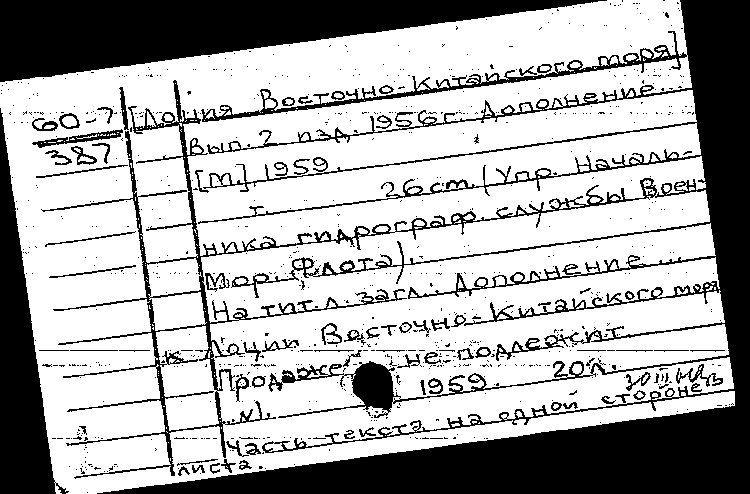 60-7 [Лоция Восточно-Китайского моря].
387 Вып. 2 изд. 1956 г. Дополнение...
[М.], 1959.
т. 26 см. (Упр. Началь-
ника гидрограф. службы Воен-
Мор. Флота).
На тит. л. загл.: Дополнение ...
к Лоции Восточно-Китайского моря
Продаже не подлежит
1959. 20 л.
Часть текста на одной стороне
листа.